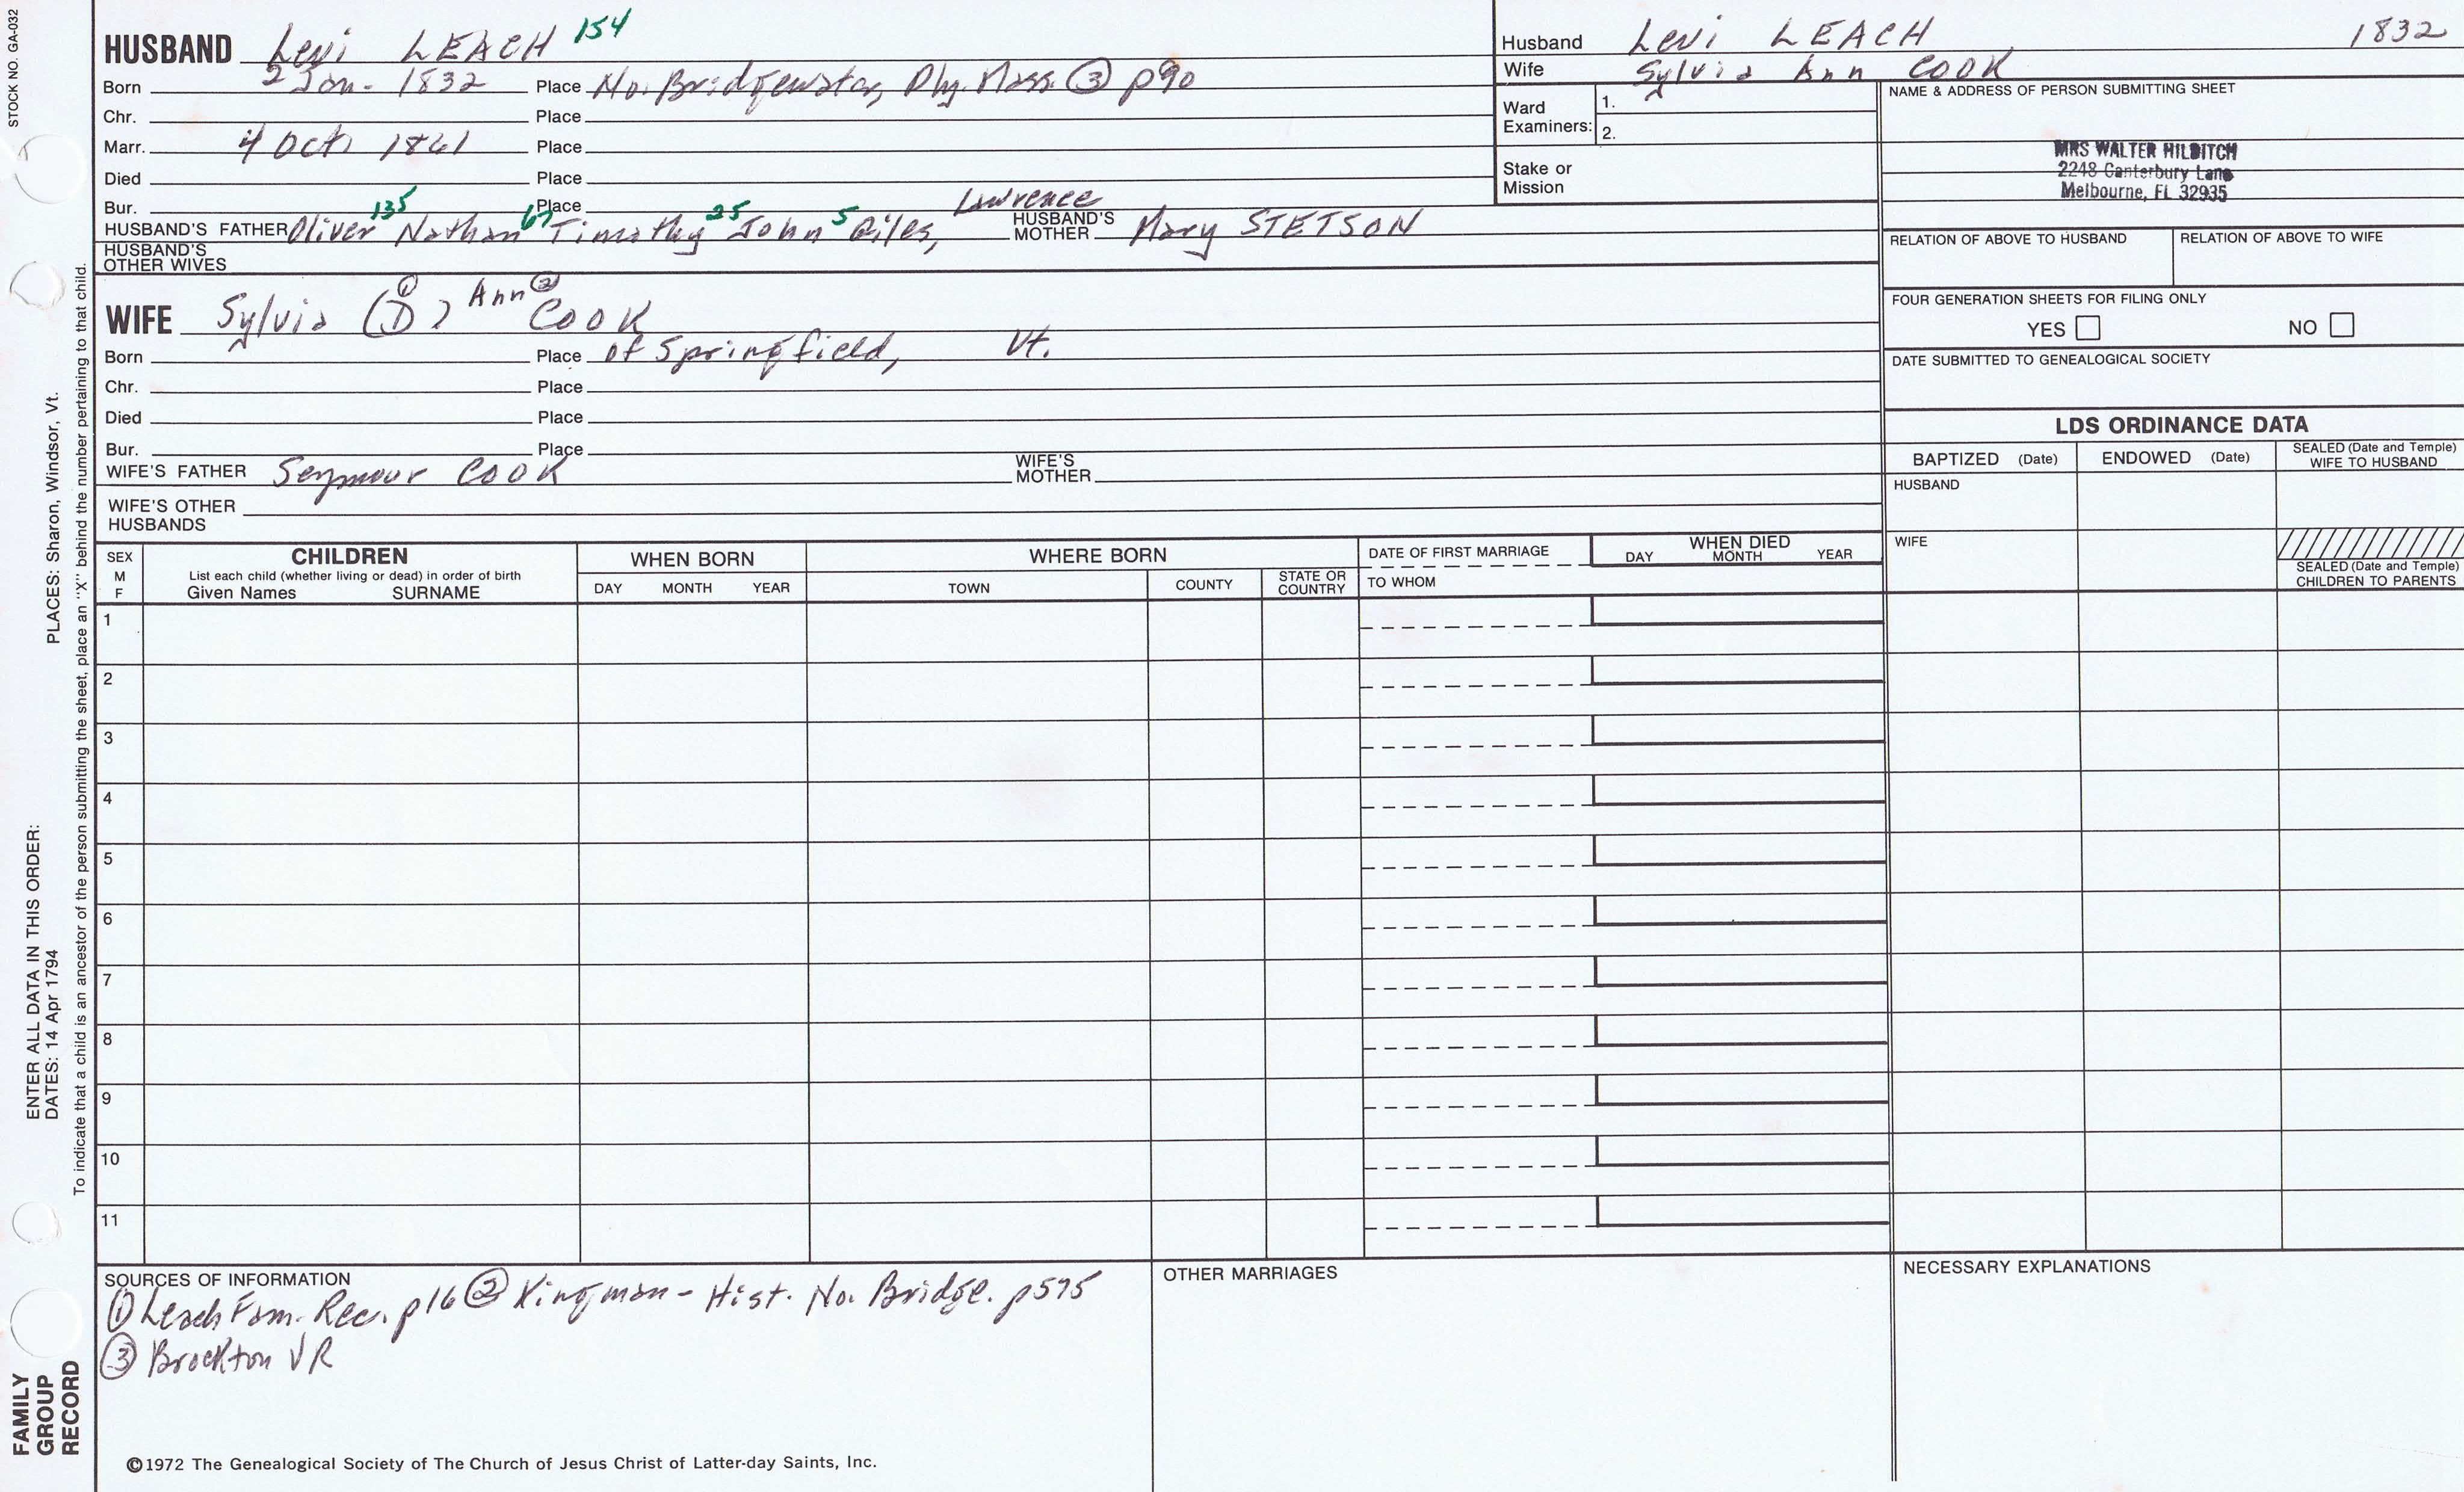 STOCK NO. GA-032
HUSBAND Levi LEACH 154
Born 2 Jan. 1832 Place No. Bridgewater, Ply. Mass. ③ p90
Chr. Place
Marr. 4 Oct. 1861 Place
Died Place
Bur. Place
HUSBAND'S FATHER Oliver 135 Nathan 67 Timothy 25 John 5 Giles, Lawrence HUSBAND'S MOTHER Mary STETSON
HUSBAND'S OTHER WIVES
WIFE Sylvia (D①) Ann② COOK
Born Place of Springfield, Vt.
Chr. Place
Died Place
Bur. Place
WIFE'S FATHER Seymour COOK WIFE'S MOTHER
WIFE'S OTHER HUSBANDS
Husband Levi LEACH 1832
Wife Sylvia Ann COOK
Ward Examiners: 1.
2.
Stake or Mission
NAME & ADDRESS OF PERSON SUBMITTING SHEET
MRS WALTER HILDITCH
2248 Canterbury Lane
Melbourne, FL 32935
RELATION OF ABOVE TO HUSBAND RELATION OF ABOVE TO WIFE
FOUR GENERATION SHEETS FOR FILING ONLY
YES NO
DATE SUBMITTED TO GENEALOGICAL SOCIETY
LDS ORDINANCE DATA
BAPTIZED (Date) ENDOWED (Date) SEALED (Date and Temple) WIFE TO HUSBAND
HUSBAND
WIFE
SEALED (Date and Temple) CHILDREN TO PARENTS
SEX M F
CHILDREN
List each child (whether living or dead) in order of birth
Given Names SURNAME
WHEN BORN
DAY MONTH YEAR
WHERE BORN
TOWN COUNTY STATE OR COUNTRY
DATE OF FIRST MARRIAGE
TO WHOM
WHEN DIED
DAY MONTH YEAR
1
2
3
4
5
6
7
8
9
10
11
SOURCES OF INFORMATION
① Leach Fam. Rec. p16 ② Kingman - Hist. No. Bridge. p575
③ Brockton VR
OTHER MARRIAGES
NECESSARY EXPLANATIONS
©1972 The Genealogical Society of The Church of Jesus Christ of Latter-day Saints, Inc.
FAMILY GROUP RECORD
ENTER ALL DATA IN THIS ORDER:
DATES: 14 Apr 1794 PLACES: Sharon, Windsor, Vt.
To indicate that a child is an ancestor of the person submitting the sheet, place an "X" behind the number pertaining to that child.